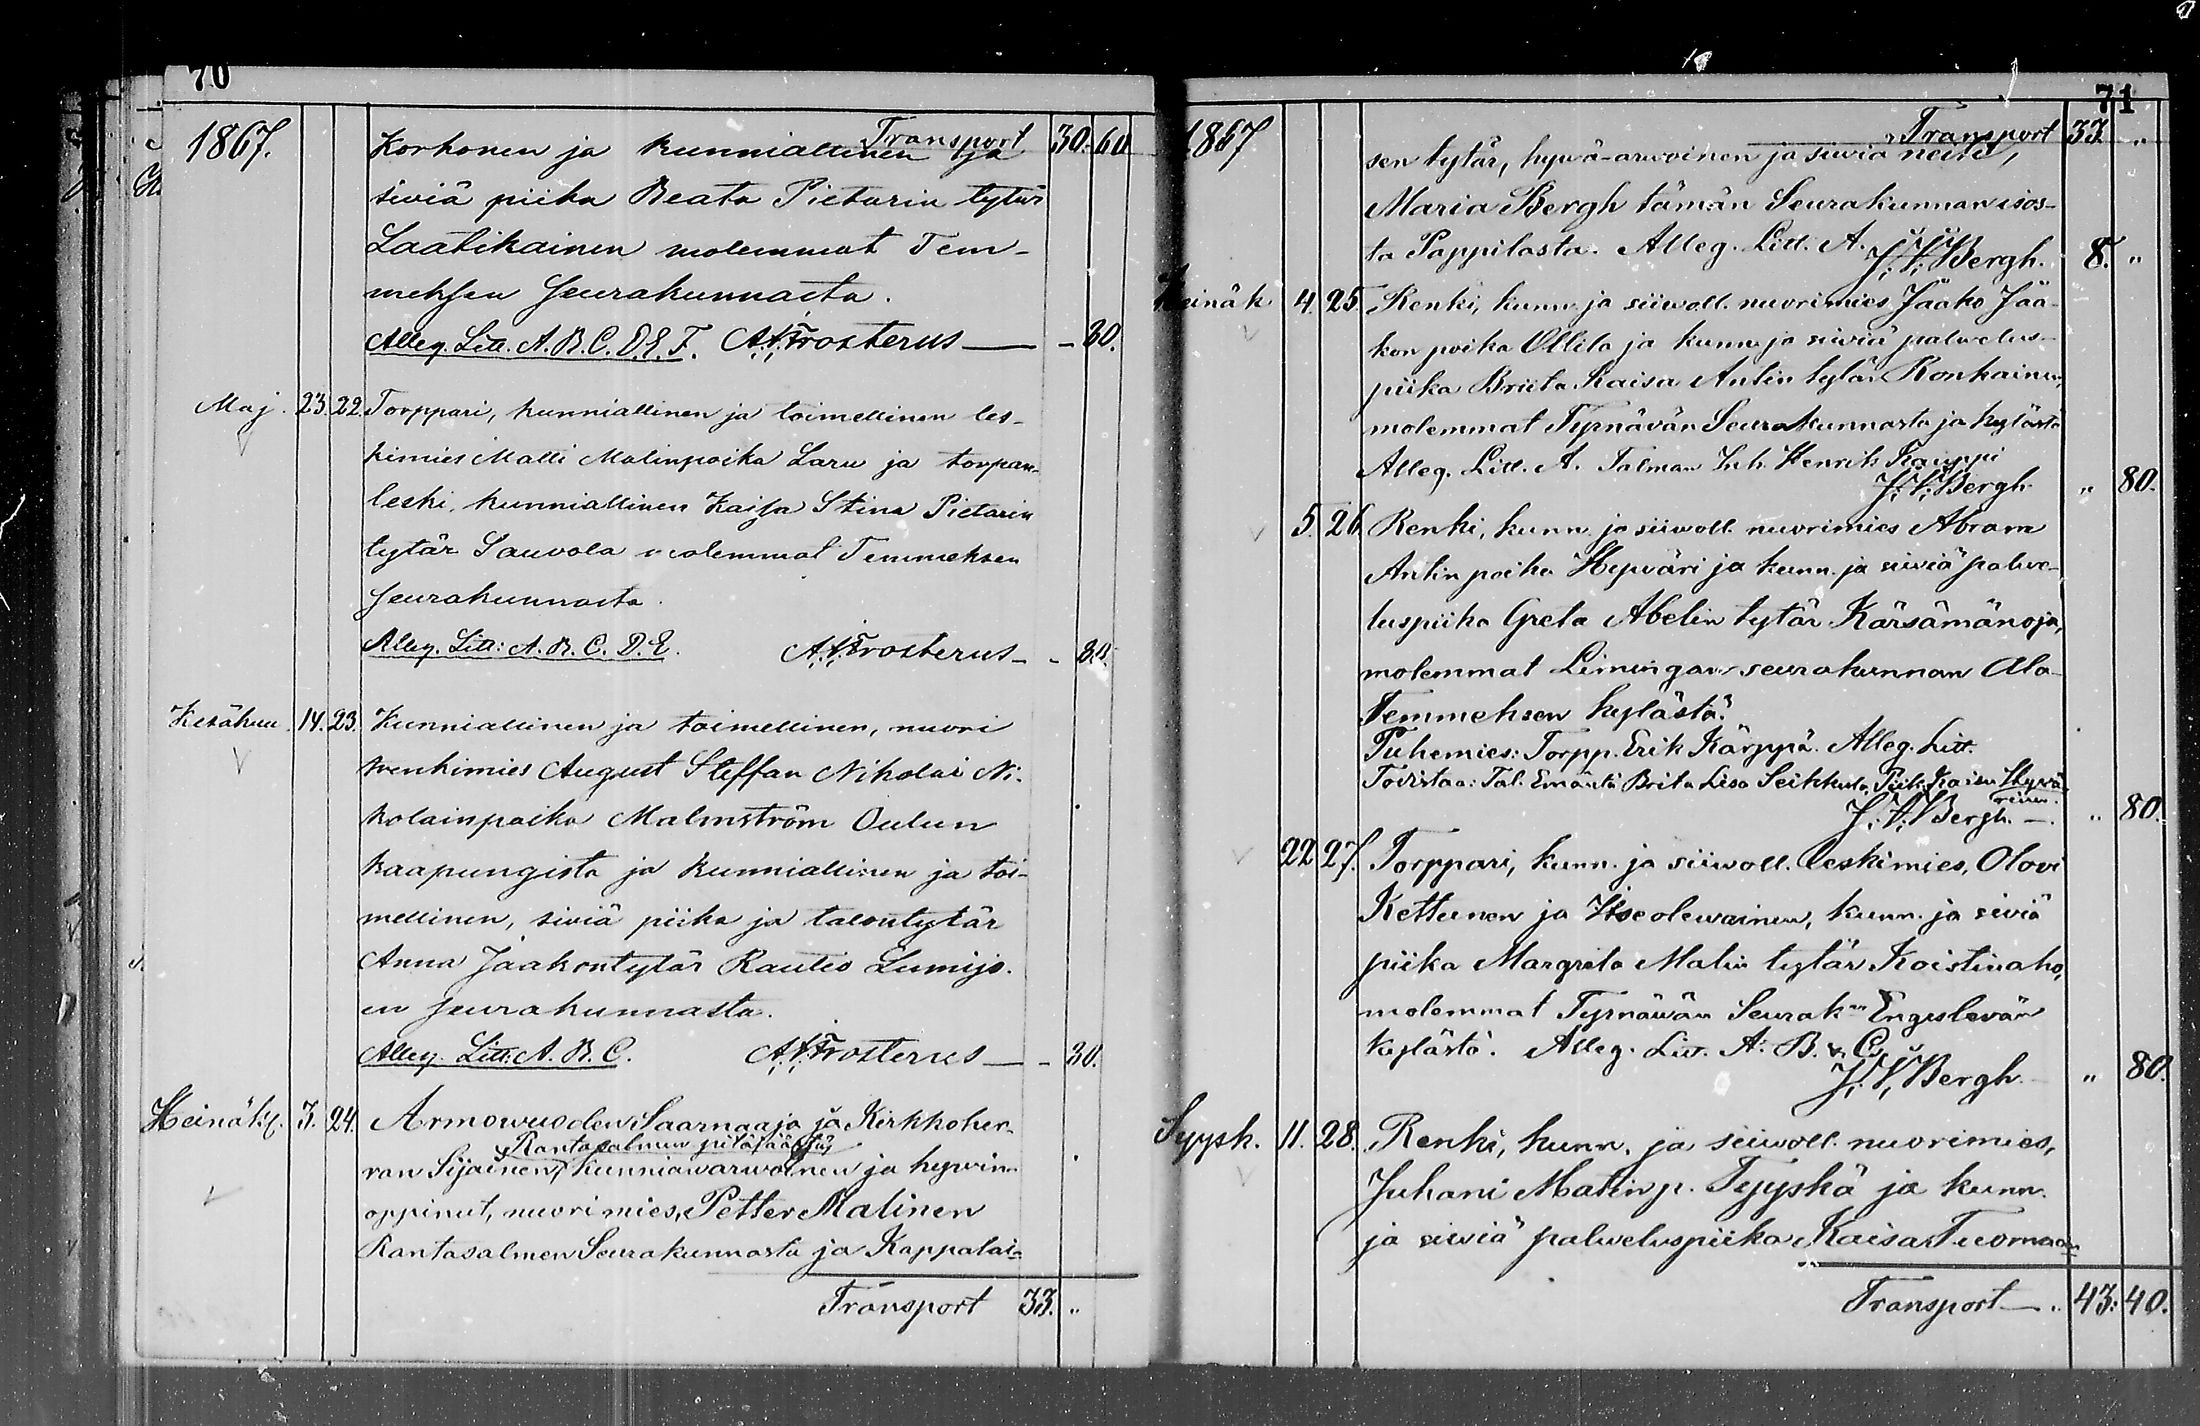 70
1867. Transport 30. 60
Korhonen ja kunniallinen ja
siviä piika Beata Pietarin tytär
Laatikainen molemmat Tem-
meksen seurakunnasta.
Alleg. Litt. A. B. C. D. E. F. A. V. Frosterus — - 80.
Maj. 23. 22. Torppari, kunniallinen ja toimellinen les-
kimies Matti Matinpoika Laru ja torpan-
leski, kunniallinen Kaisa Stina Pietarin
tytär Sauvola molemmat Temmeksen
seurakunnasta.
Alleg. Litt: A. B. C. D. E. A. V. Frosterus - - 80.
Kesäkuu 14. 23. Kunniallinen ja toimellinen, nuori
renkimies August Steffan Nikolai Ni-
kolainpoika Malmström Oulun
kaapungista ja kunniallinen ja toi-
mellinen, siviä piika ja talontytär
Anna Jaakontytär Rautio Lumijo-
en seurakunnasta.
Alleg. Litt: A. B. C. A. V. Frosterus — - 80.
Heinäk. 3. 24. Armowuoden Saarnaaja ja Kirkkoher-
Rantasalmen pitäjäästä,
ran Sijainen, kunniawarwoinen ja hywin-
oppinut, nuori mies, Petter Malinen
Rantasalmen Seurakunnasta ja Kappalai-
Transport 33. "
71
1867 Transport 33. "
sen tytär, hywä-arwoinen ja siwiä neiti,
Maria Bergh tämän Seurakunnan isos-
ta Pappilasta. Alleg. Litt. A. J. V. Bergh. 8. "
Heinäk 4. 25. Renki, kunn. ja siiwoll. nuorimies Jaako Jaa-
kon poika Ollila ja kunn. ja siwiä palwelus-
piika Briita Kaisa Antin tytär Ronkainen,
molemmat Tyrnävän Seurakunnasta ja kylästä
Alleg. Litt. A. Talman Inh. Henrik Kauppi
J. V. Bergh " 80.
5. 26. Renki, kunn. ja siiwoll. nuorimies Abram
Antin poika Hywäri ja kunn. ja siwiä palwe-
luspiika Greta Abelin tytär Kärsämänoja,
molemmat Limingan seurakunnan Ala-
Temmeksen kylästä.
Puhemies: Torpp. Erik Kärppä. Alleg. Litt.
Todistaa: Tal. Emäntä Brita Lisa Seikkula, Piik. Kaisa Hywä-
rinen.
J. V. Bergh. — " 80.
22 27. Torppari, kunn. ja siiwoll. leskimies, Olovi
Kettunen ja Itseolewainen, kunn. ja siviä
piika Margreta Matin tytär Koistinaho,
molemmat Tyrnäwän Seurak:n Engeslevän
kylästä. Alleg. Litt. A. B. & C.
J. V. Bergh. " 80.
Syysk. 11. 28. Renki, kunn. ja siiwoll. nuorimies,
Juhani Matinp. Tyyskä ja kunn.
ja siwiä palweluspiika Kaisa Tuoman
Transport — " 43: 40.